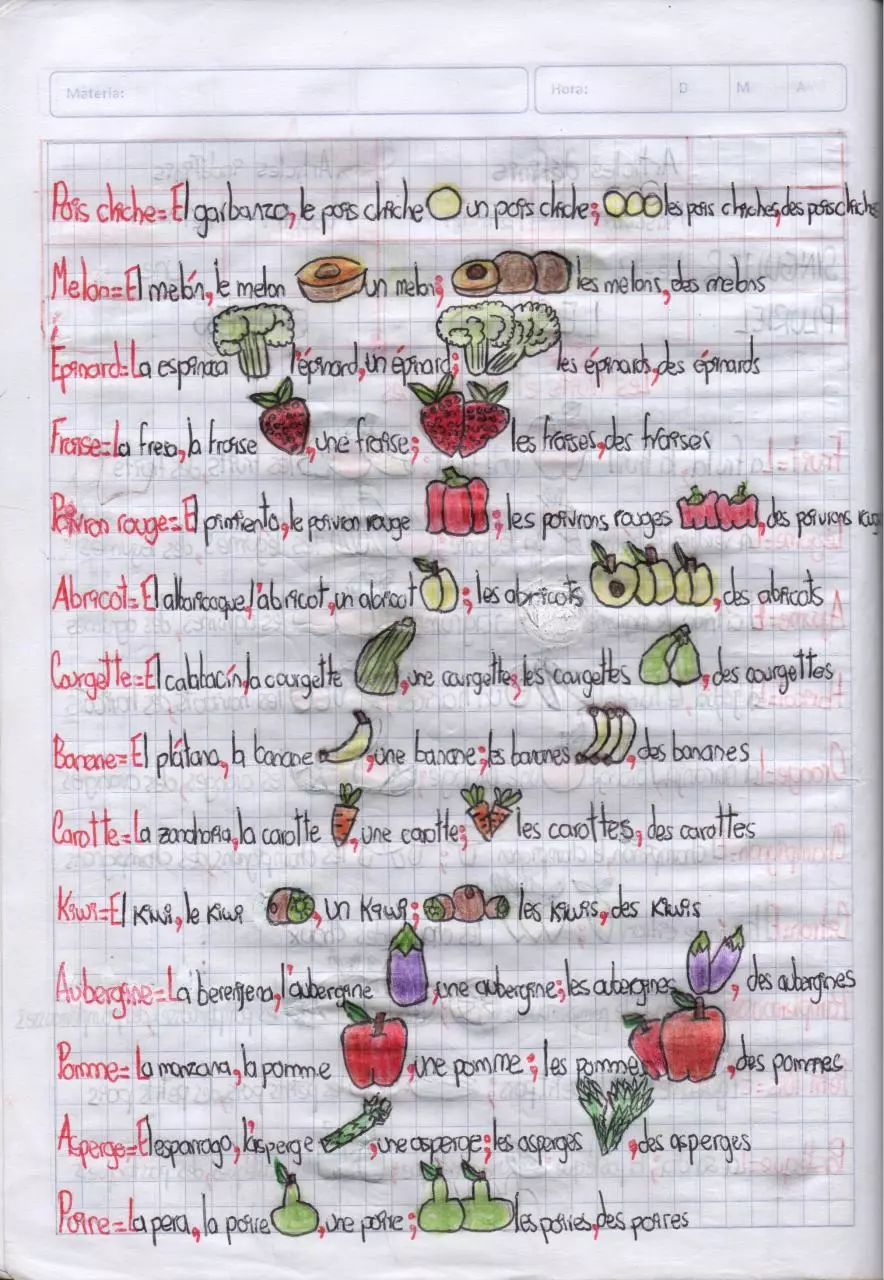 Materia: Hora: D M A
Pois chiche= El garbanzo, le pois chiche un pois chiche; les pois chiches, des pois chiche
Melon= El melón, le melon un melon; les melons, des melons
Épinard= La espinaca l'épinard, un épinard; les épinards, des épinards
Fraise= La fresa, la fraise, une fraise; les fraises, des fraises
Poivron rouge= El pimiento, le poivron rouge; les poivrons rouges, des poivrons roug
Abricot= El albaricoque, l'abricot, un abricot; les abricots, des abricots
Courgette= El calabacín, la courgette, une courgette; les courgettes, des courgettes
Banane= El plátano, la banane, une banane; les bananes, des bananes
Carotte= La zanahoria, la carotte, une carotte; les carottes, des carottes
Kiwi= El kiwi, le kiwi, un kiwi; les kiwis, des kiwis
Aubergine= La berenjena, l'aubergine, une aubergine; les aubergines, des aubergines
Pomme= La manzana, la pomme, une pomme; les pommes, des pommes
Asperge= El esparrago, l'asperge, une asperge; les asperges, des asperges
Poire= La pera, la poire, une poire; les poires, des poires